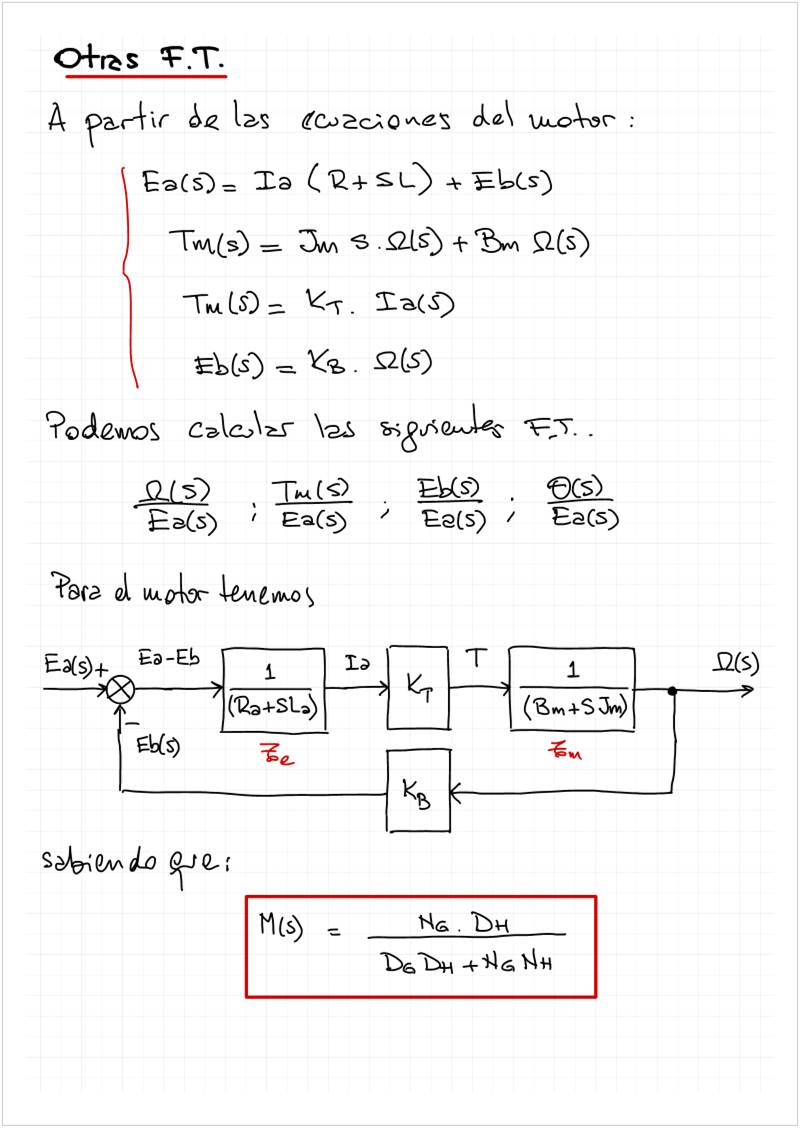 Otras F.T.
A partir de las ecuaciones del motor:
Ea(s) = Ia (R+SL) + Eb(s)
Tm(s) = Jm s.Ω(s) + Bm Ω(s)
Tm(s) = KT. Ia(s)
Eb(s) = KB. Ω(s)
Podemos calcular las siguientes F.T..
Ω(s)/Ea(s) ; Tm(s)/Ea(s) ; Eb(s)/Ea(s) ; Θ(s)/Ea(s)
Para el motor tenemos
Ea(s) + Ea-Eb 1/(Ra+SLa) Ia KT T 1/(Bm+SJm) Ω(s)
− Eb(s) KB
sabiendo que:
M(s) = NG . DH / DG DH + NG NH